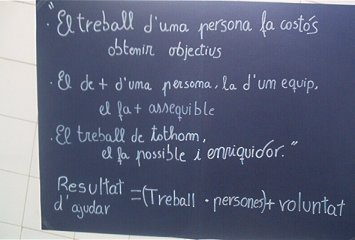 ."El treball d'una persona fa costós
obtenir objectius
. El de + d'una persona, la d'un equip,
el fa + assequible
. El treball de tothom,
el fa possible i enriquidor."
Resultat =(Treball · persones)+ voluntat
d'ajudar